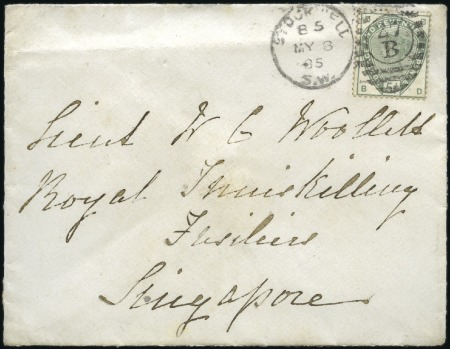 STOCKWELL
B5
MY 8
85
S.W.
27
B
B D
Lieut W C Woollett
Royal Inniskilling
Fusiliers
Singapore